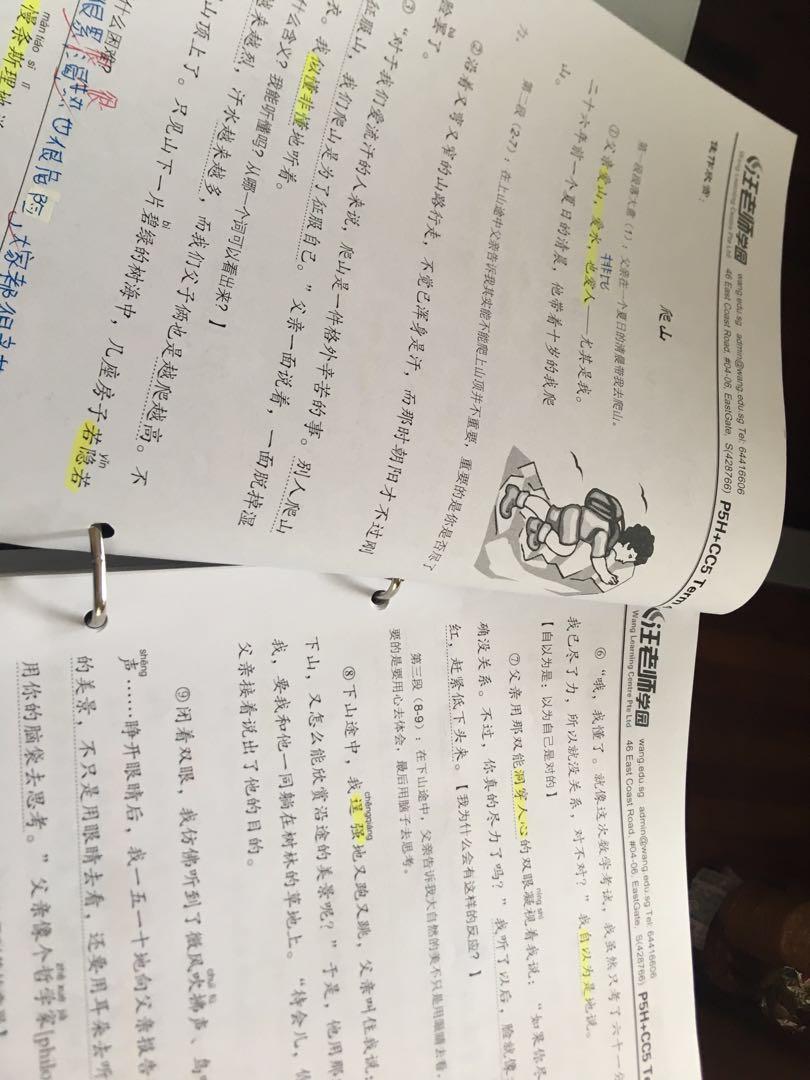 汪老师学园 wang.edu.sg admin@wang.edu.sg Tel: 64416606
Wang Learning Centre Pte Ltd 46 East Coast Road, #04-06, EastGate, S(428766) P5H+CC5 Term
佳作欣赏：
爬山
第一段段落大意（1）：父亲在一个夏日的清晨带我去爬山。
①父亲爱山，爱水，也爱人——尤其是我。
排比
二十六年前一个夏日的清晨，他带着十岁的我爬
山。
第二段（2-7）：在上山途中父亲告诉我其实能不能爬上山顶并不重要，重要的是你是否尽了
力。
②沿着又弯又窄的山路行走，不觉已浑身是汗，而那时朝阳才不过刚
脸罢了。
③“对于我们爱流汗的人来说，爬山是一件格外辛苦的事。别人爬山
征服山，我们爬山是为了征服自己。”父亲一面说着，一面脱掉湿
衣。我似懂非懂地听着。
什么含义？我能听懂吗？从哪一个词可以看出来？】
越来越烈，汗水越来越多，而我们父子俩也是越爬越高。不
bì yǐn
山顶上了。只见山下一片碧绿的树海中，几座房子若隐若
什么困难？
很
很累 也很危险 大家都很
màn tiáo sī lǐ
慢条斯理地说
汪老师学园 wang.edu.sg admin@wang.edu.sg Tel: 64416606
Wang Learning Centre Pte Ltd 46 East Coast Road, #04-06, EastGate, S(428766) P5H+CC5 T
⑥“哦，我懂了。就像这次数学考试，我虽然只考了六十一分
我已尽了力，所以就没关系，对不对？”我自以为是地说。
【自以为是：以为自己是对的】
níng shì
⑦父亲用那双能洞穿人心的双眼凝视着我说：“如果你尽
确没关系。不过，你真的尽力了吗？”我听了以后，脸就像
红，赶紧低下头来。【我为什么会有这样的反应？】
第三段（8-9）：在下山途中，父亲告诉我大自然的美不只是用眼睛去看，
要的是要用心去体会，最后用脑子去思考。
chěngqiáng
⑧下山途中，我逞强地又跑又跳，父亲叫住我说：
下山，又怎么能欣赏沿途的美景呢？”于是，他用那
我，要我和他一同躺在树林的草地上。“待会儿，
父亲接着说出了他的目的。
chuī fú
⑨闭着双眼，我仿佛听到了微风吹拂声、鸟
shēng
声……睁开眼睛后，我一五一十地向父亲报告
的美景，不只是用眼睛去看，还要用耳朵去听
zhé xué jiā
用你的脑袋去思考。”父亲像个哲学家[philo